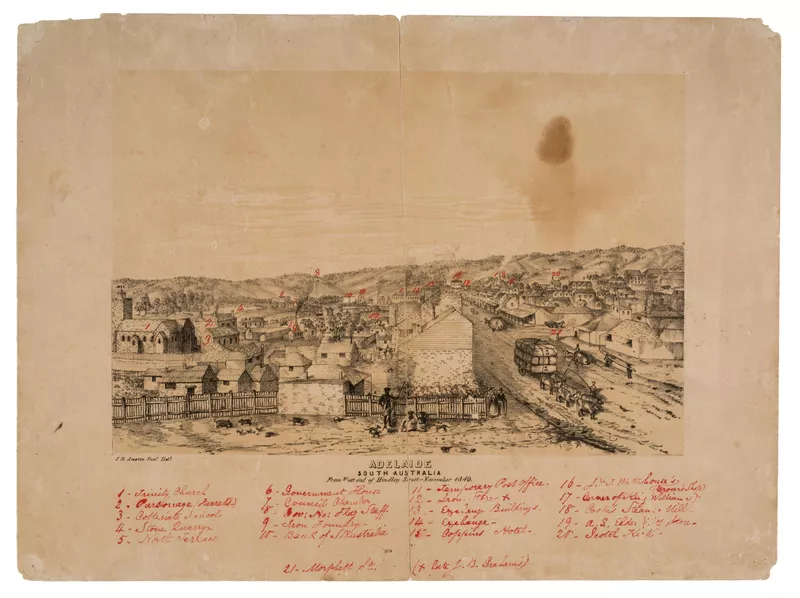 ADELAIDE
SOUTH AUSTRALIA
From West end of Hindley Street - November 1849.
1 - Trinity Church
2 - Parsonage
3 - Collegiate School
4 - Stone Quarry
5 - North Terrace
6 - Government House
7 - Council Chamber
8 - Flag Staff
9 - Iron Foundry -
10 - Bank of S. Australia
11 - Temporary Post Office.
12 - Iron
13 - Exchange Buildings.
14 - Exchange -
15 - Coppins Hotel -
16 -
17 - Corner of William St
18 - Steam Mill -
19 - A. L. Elder Store -
20 - Scotch Kirk -
21 - Morphett St.
(+ late J. B. Graham's)